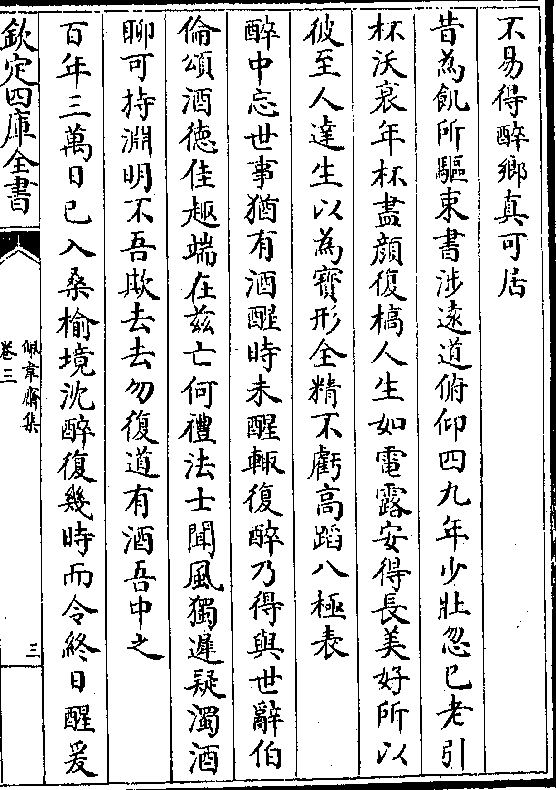 不易得醉鄉真可居
昔為飢所驅束書涉遠道俯仰四九年少壯忽已老引
杯沃衰年杯盡顔復槁人生如電露安得長美好所以
彼至人達生以為寳形全精不虧高蹈八極表
醉中忘世事猶有酒醒時未醒輙復醉乃得與世辭伯
倫頌酒德佳趣端在兹亡何禮法士聞風獨遲疑濁酒
聊可持淵明不吾欺去去勿復道有酒吾中之
百年三萬日已入桑榆境沈醉復幾時而令終日醒爰
欽定四庫全書
佩韋齋集
卷三
三